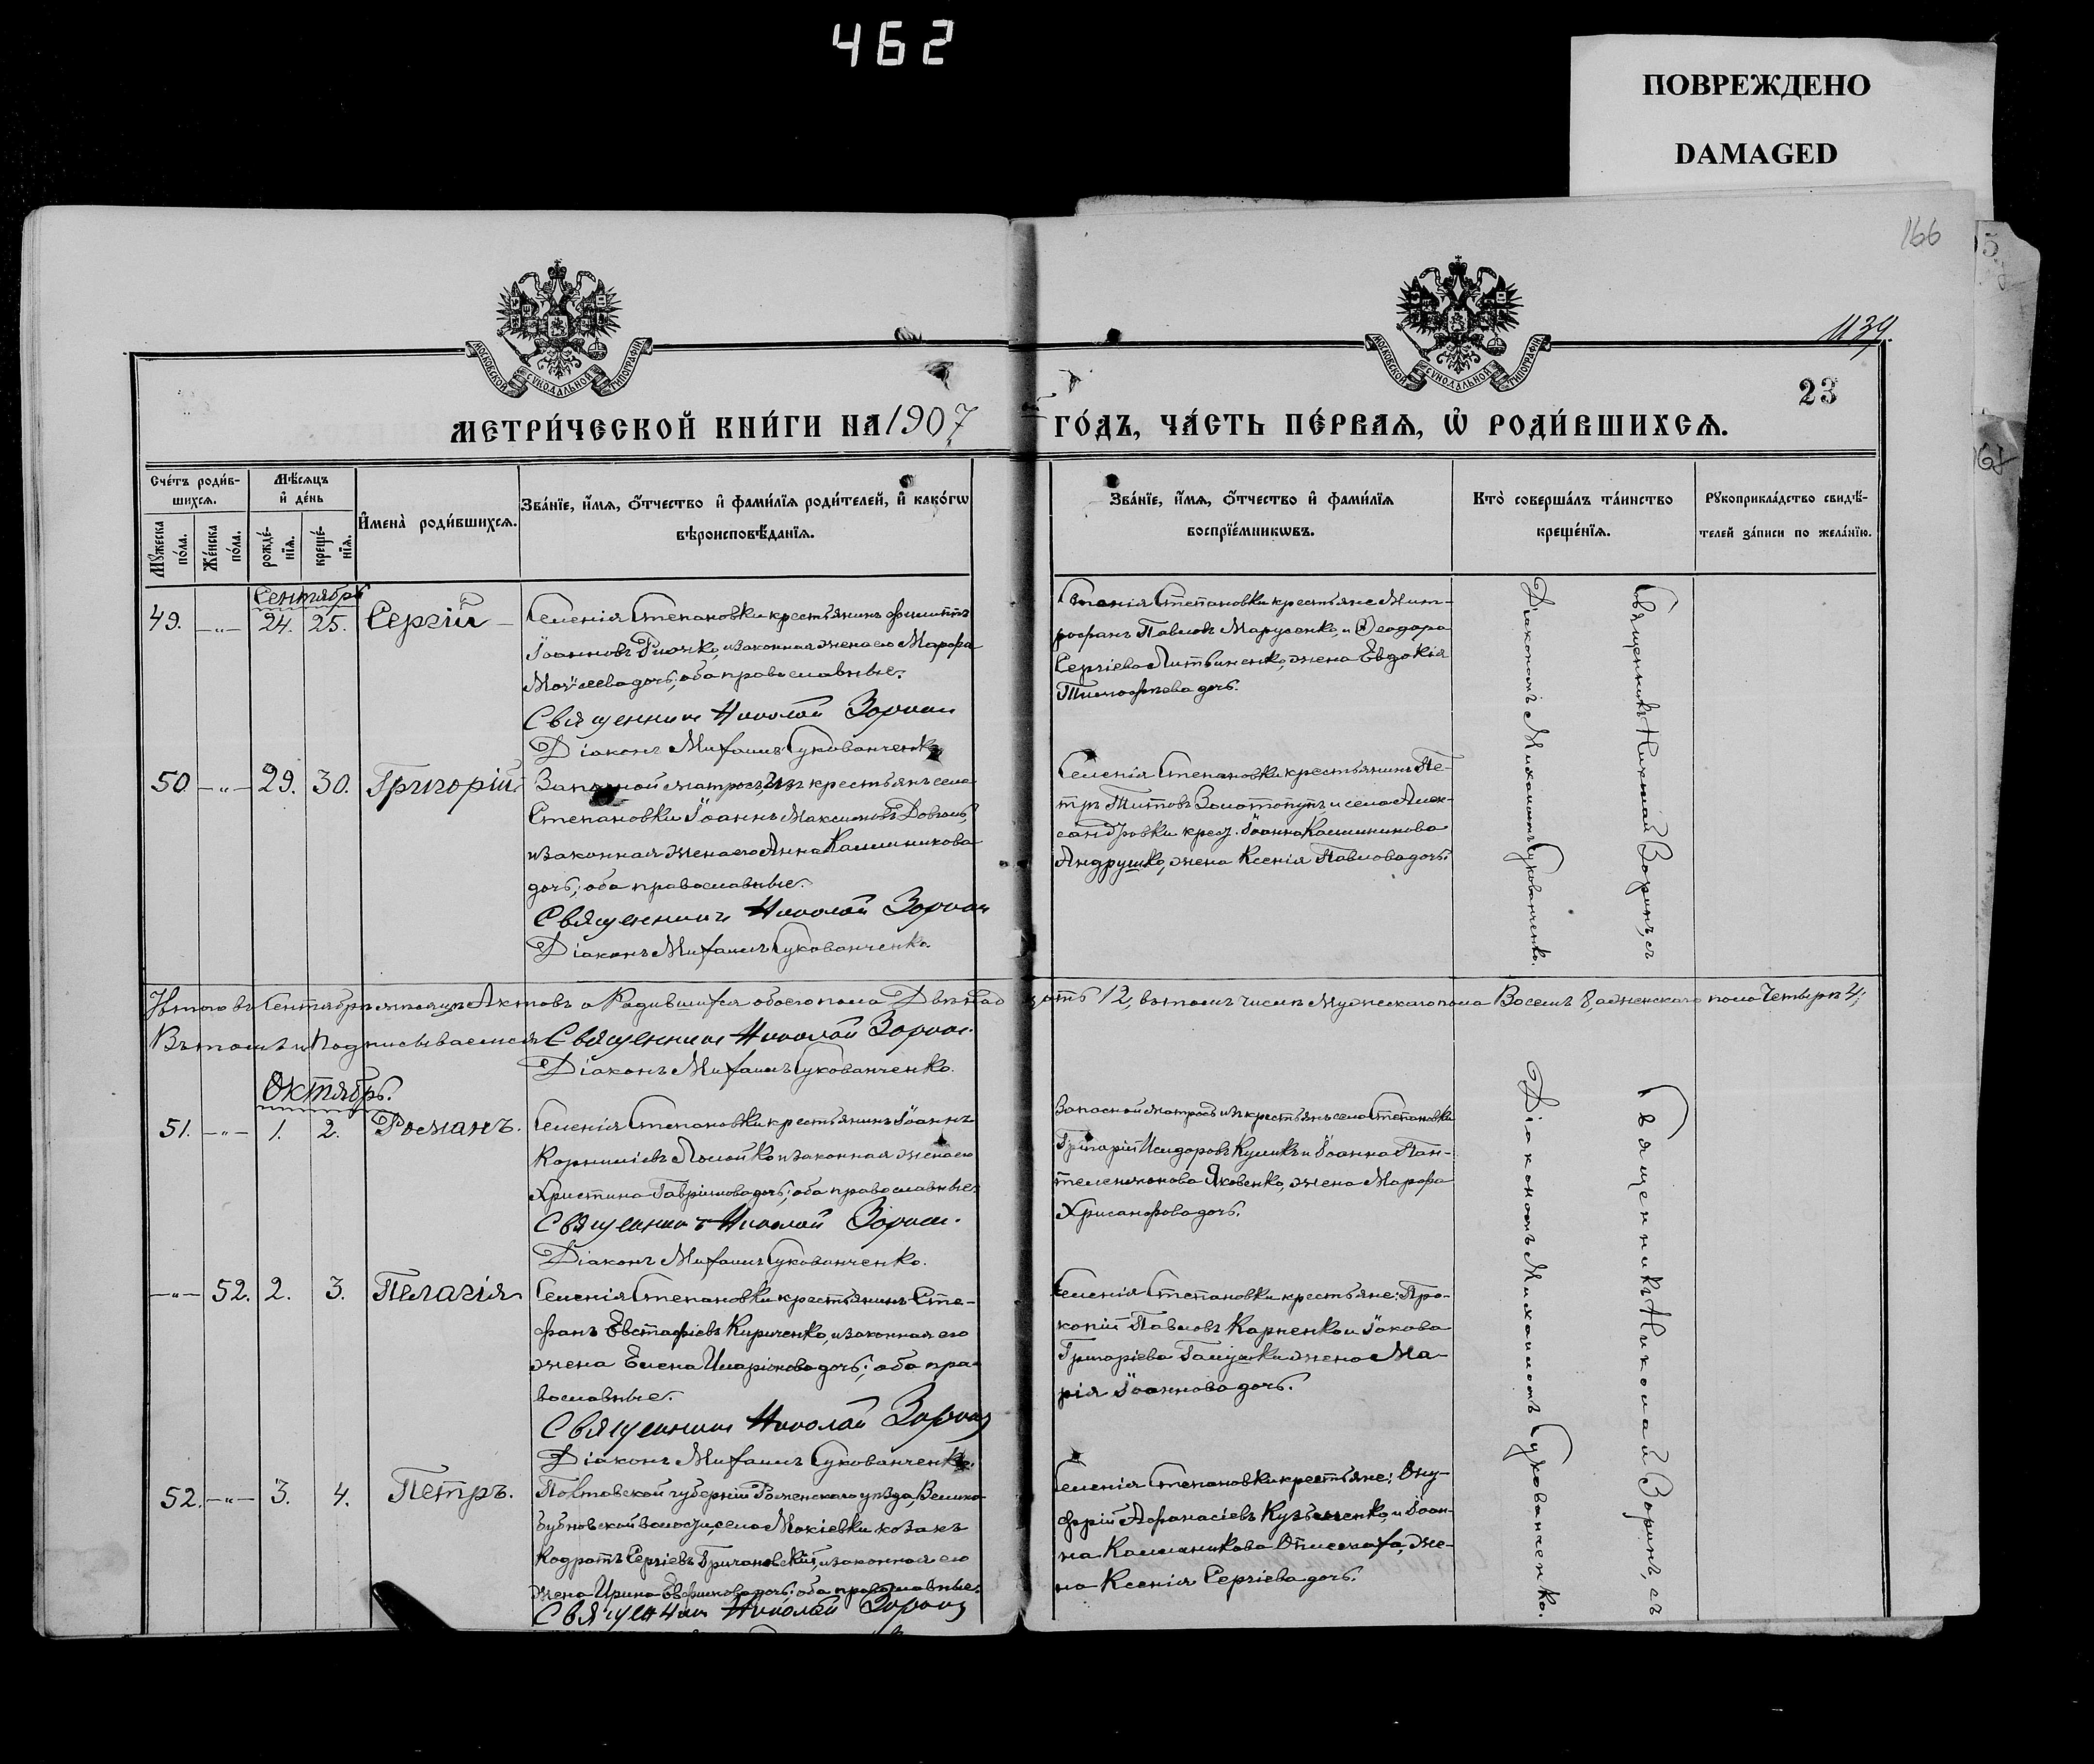 462
ПОВРЕЖДЕНО
DAMAGED
166
5
1139.
23
МОСКОВСКОЙ СУНОДАЛЬНОЙ ТИПОГРАФІИ
МОСКОВСКОЙ СУНОДАЛЬНОЙ ТИПОГРАФІИ
МЕТРИ́ЧЕСКОЙ КНИ́ГИ НА 1907 ГО́ДЪ, ЧА́СТЬ ПЕ́РВАѦ, Ѡ҆ РОДИ́ВШИХСѦ.
Сче́тъ роди́в-
шихсѧ.
Мꙋ́жеска по́ла.
Же́нска по́ла.
Мѣ́сѧцъ
и҆ де́нь
рожде́-
нїѧ.
креще́-
нїѧ.
И҆мена̀ роди́вшихсѧ.
Зва́нїе, и҆́мѧ, ѻ҆́тчество и҆ фами́лїѧ роди́телей, и҆ како́гѡ
вѣроисповѣ́данїѧ.
Зва́нїе, и҆́мѧ, ѻ҆́тчество и҆ фами́лїѧ
воспрїе́мникѡвъ.
Кто̀ соверша́лъ та́инство
креще́нїѧ.
Рꙋкоприкла́дство свидѣ́-
телей за́писи по жела́нїю.
Сентябрь
49. —„— 24. 25. Сергій
Селенія Степановки крестьянинъ Филиппъ
Іоанновъ Рючко, и законная жена его Марѳа
Моѵсеева дочь; оба православные.
Священник Николай Зорин
Діаконъ Михаилъ Сукованченко
Селенія Степановки крестьяне Мит-
рофанъ Павловъ Марусенко, и Ѳеодора
Сергіева Литвиненко, жена Евдокія
Тимоѳеева дочь.
50 —„— 29. 30. Григорій
Запасной матросъ, изъ крестьянъ села
Степановки Іоаннъ Максимовъ Довгаль,
и законная жена его Анна Каллиникова
дочь; оба православные.
Священникъ Николай Зорин
Діаконъ Михаилъ Сукованченко.
Селенія Степановки крестьянинъ Пе-
тръ Титовъ Золотопупъ и села Алек-
сандровки крест. Іоанна Каллиникова
Андрушко, жена Ксенія Павлова дочь.
Священникъ Николай Зоринъ, съ
Діакономъ Михаиломъ Сукованченко.
Итого въ Сентябрѣ мѣсяцѣ Актовъ о Родившихся обоего пола Двѣнадцать 12, въ томъ числѣ Мужескаго пола Восемь 8, а женскаго пола Четыре 4;
Въ томъ и Подписываемся Священник Николай Зорин.
Діаконъ Михаилъ Сукованченко.
Октябрь.
51. —„— 1. 2. Романъ.
Селенія Степановки крестьянинъ Іоаннъ
Корниліевъ и законная жена его
Христина Гавріилова дочь; оба православные.
Священникъ Николай Зорин.
Діаконъ Михаилъ Сукованченко.
Запасной матросъ изъ крестьянъ села Степановки
Григорій Исидоровъ Куликъ и Іоанна Пан-
телеимонова Яковенко, жена Марѳа
Хрисанѳова дочь.
—„— 52. 2. 3. Пелагія
Селенія Степановки крестьянинъ Сте-
фанъ Евстафіевъ Кириченко, и законная его
жена Елена Иларіонова дочь; оба пра-
вославные.
Священник Николай Зорин
Діаконъ Михаилъ Сукованченко.
Селенія Степановки крестьяне: Про-
копій Павловъ Карпенко и Іакова
Григоріева Галушки жена Ма-
рія Іоаннова дочь.
52. —„— 3. 4. Петръ.
Полтавской губерніи Роменскаго уѣзда, Велико-
бубновской волости, села Мокіевки козакъ
Кодратъ Сергіевъ Гричановскій, и законная его
жена Ирина Евфимова дочь; оба православные.
Священник Николай Зорин
Селенія Степановки крестьяне: Ону-
фрій Аѳанасіевъ Кузьменко, и Іоан-
на Каллиникова жe-
на Ксенія Сергіева дочь.
Священникъ Николай Зоринъ, съ
Діакономъ Михаиломъ Сукованченко.